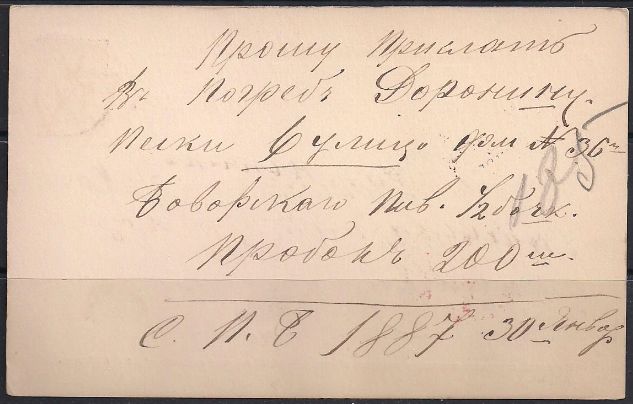 Прошу Прислать
Въ Погребъ Доронину.
Пески 6 улицо дом № 36
Баварскаго Пив. 1/2 бочк.
Пробокъ 200 ш.
С. П. Б 1887 30 Январ
185